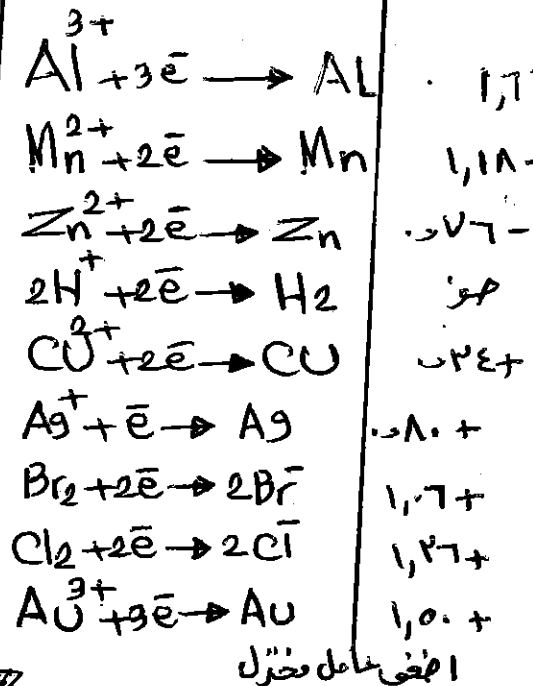 Al³⁺ + 3e⁻ → Al ١,٦
Mn²⁺ + 2e⁻ → Mn ١,١٨-
Zn²⁺ + 2e⁻ → Zn ٠,٧٦-
2H⁺ + 2e⁻ → H2 صفر
Cu²⁺ + 2e⁻ → Cu ٠,٣٤+
Ag⁺ + e⁻ → Ag ٠,٨٠+
Br₂ + 2e⁻ → 2Br⁻ ١,٠٦+
Cl₂ + 2e⁻ → 2Cl⁻ ١,٣٦+
Au³⁺ + 3e⁻ → Au ١,٥٠+
اضعف عامل مختزل